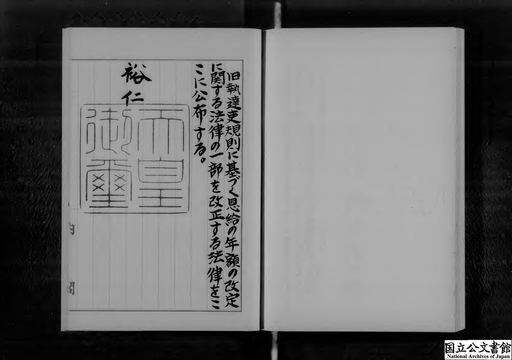 旧執達吏規則に基づく恩給の年額の改定
に関する法律の一部を改正する法律をこ
こに公布する。
裕仁
天皇
御璽
国立公文書館
National Archives of Japan